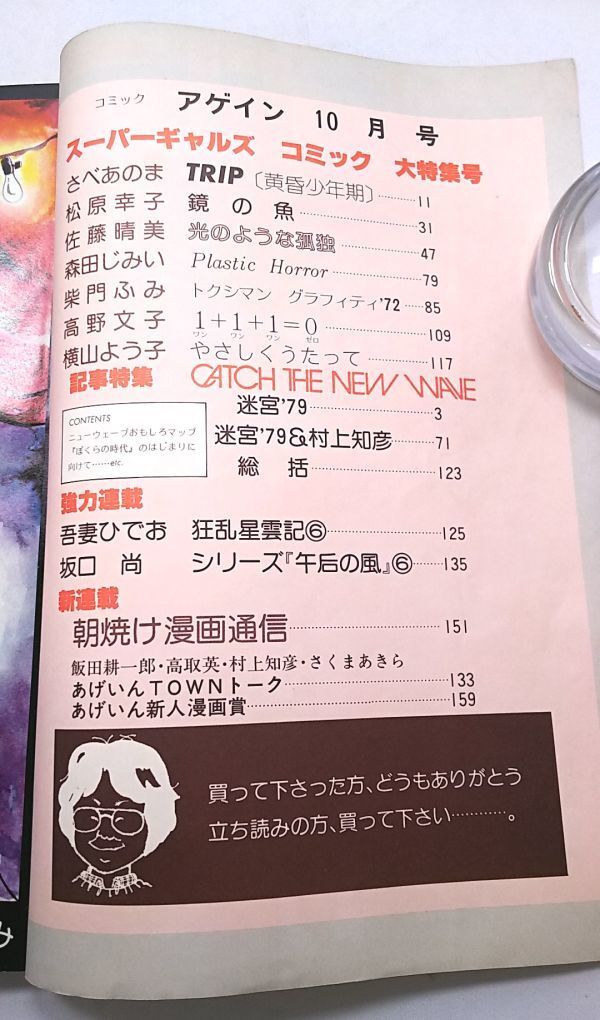 コミック アゲイン 10月号
スーパーギャルズ コミック 大特集号
さべあのま TRIP〔黄昏少年期〕………11
松原幸子 鏡の魚………31
佐藤晴美 光のような孤独………47
森田じみい Plastic Horror………79
柴門ふみ トクシマン グラフィティ'72……85
高野文子 1+1+1=0………109
ワン ワン ワン ゼロ
横山よう子 やさしくうたって………117
記事特集 CATCH THE NEW WAVE
迷宮'79………3
CONTENTS
ニューウェーブおもしろマップ
『ぼくらの時代』のはじまりに
向けて……etc.
迷宮'79&村上知彦………71
総括………123
強力連載
吾妻ひでお 狂乱星雲記⑥………125
坂口尚 シリーズ『午后の風』⑥……135
新連載
朝焼け漫画通信………151
飯田耕一郎・高取英・村上知彦・さくまあきら
あげいんTOWNトーク………133
あげいん新人漫画賞………159
買って下さった方、どうもありがとう
立ち読みの方、買って下さい…………。
み